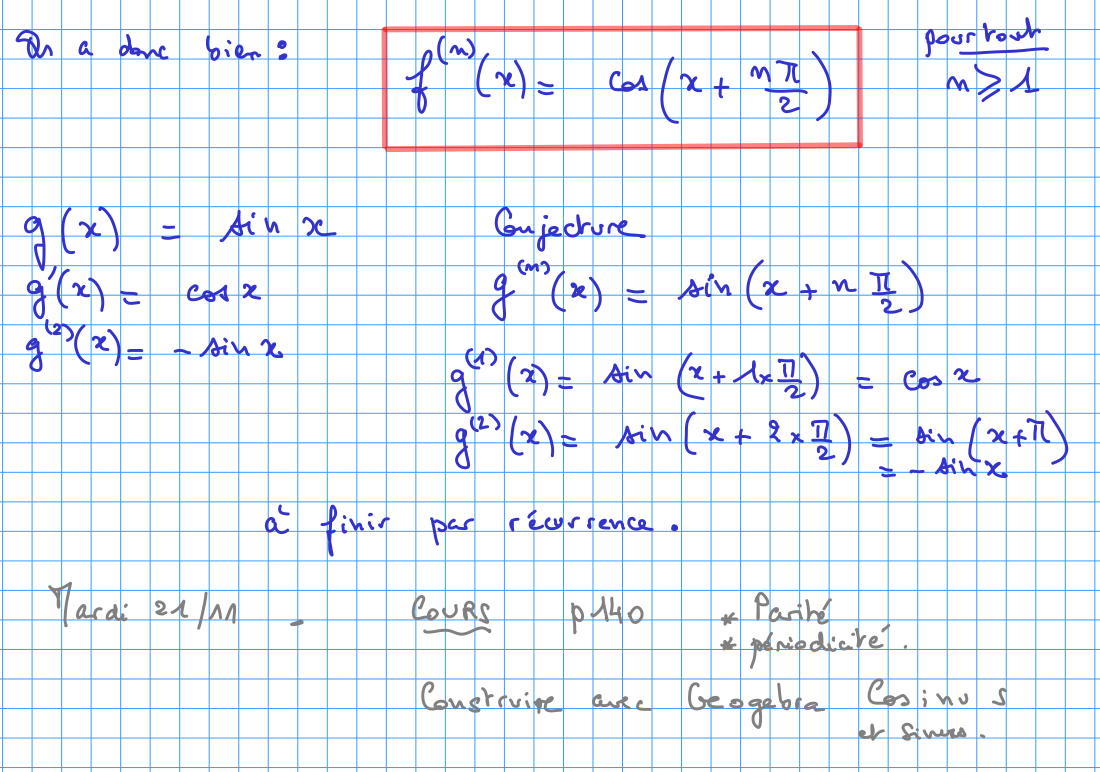 On a donc bien : f^(n)(x) = cos(x + nπ/2) pour tout n ⩾ 1
g(x) = sin x
g'(x) = cos x
g^(2)(x) = - sin x
Conjecture
g^(n)(x) = sin(x + n π/2)
g^(1)(x) = sin (x + 1×π/2) = cos x
g^(2)(x) = sin(x + 2×π/2) = sin(x+π)
= - sin x
à finir par récurrence.
Mardi 21/11 - COURS p140 * Parité
* périodicité.
Construire avec Geogebra Cosinus
et sinus.